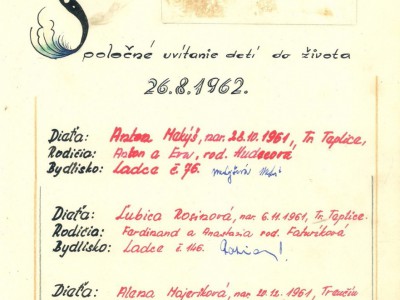 Spoločné uvítanie detí do života
26.8.1962.
Dieťa: Anton Matýš, nar. 28.10.1961, Tr. Teplice,
Rodičia: Anton a Eva, rod. Hudecová
Bydlisko: Ladce č. 76.
Dieťa: Ľubica Rosinová, nar. 6.11.1961, Tr. Teplice.
Rodičia: Ferdinand a Anastazia rod.
Bydlisko: Ladce č. 146.
Dieťa: Alena Majeríková, nar. 20.12.1961, Trenčín